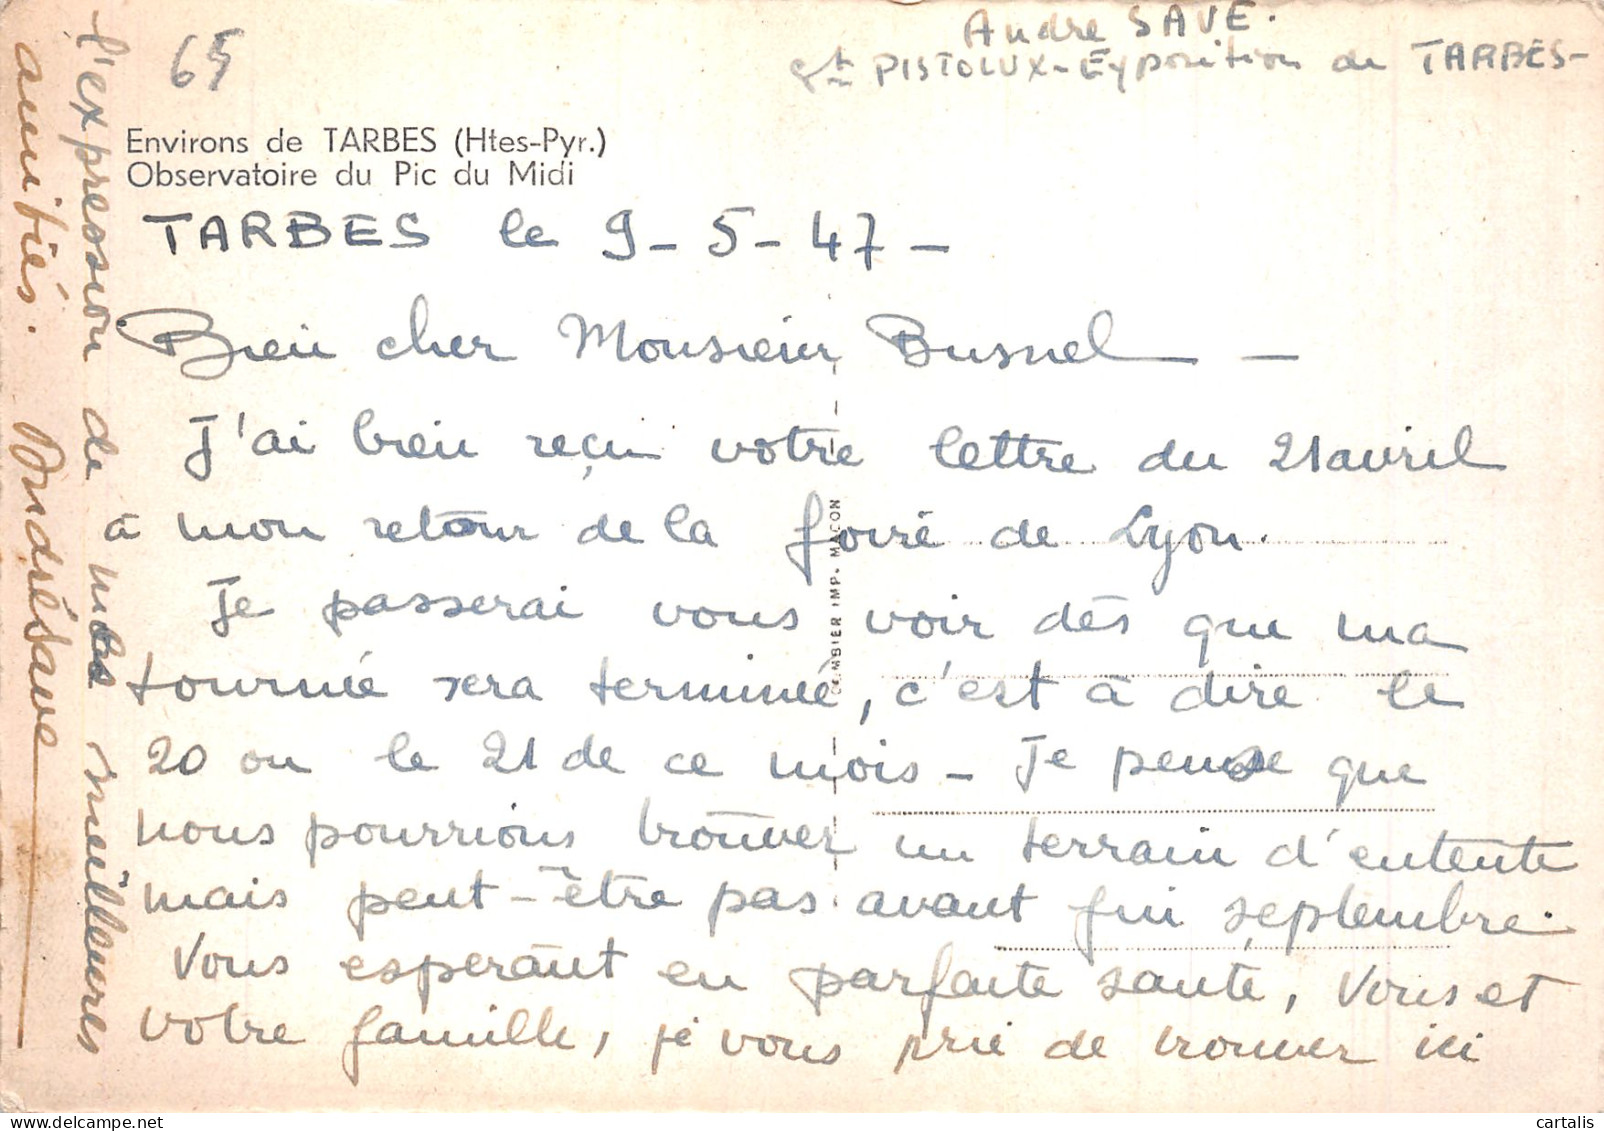 65
André SAVE.
PISTOLUX - Exposition de TARBES -
Environs de TARBES (Htes-Pyr.)
Observatoire du Pic du Midi
TARBES le 9-5-47-
Bien cher Monsieur Busnel -
J'ai bien reçu votre lettre du 21 avril
à mon retour de la foire de Lyon.
Je passerai vous voir dès que ma
tournée sera terminée, c'est à dire le
20 ou le 21 de ce mois - Je pense que
nous pourrions trouver un terrain d'entente
mais peut-être pas avant fin septembre.
Vous espérant en parfaite santé, vous et
votre famille, je vous prie de trouver ici
l'expression de mes meilleures
amitiés. André Save
COMBIER IMP. MACON
cartalis